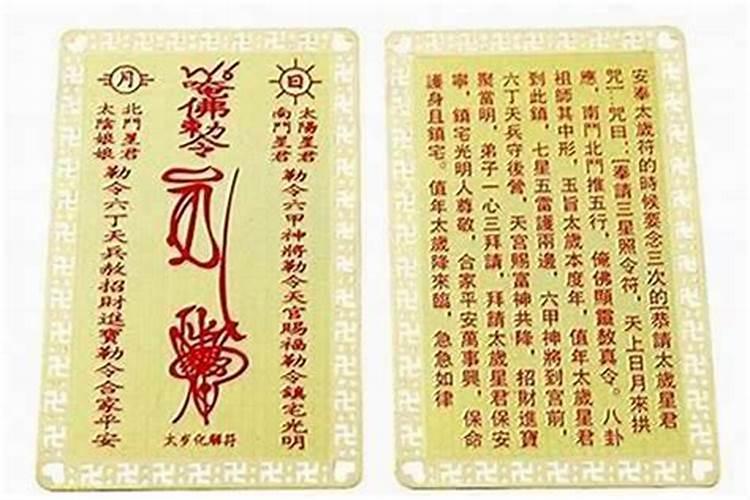 日
太陽星君
南鬥星君
勒令六甲神將勒令天官賜福勒令鎮宅光明
唵佛勅令
太歲化解符
月
北鬥星君
太陰娘娘
勒令六丁天兵敖招財進寶勒令合家平安
安奉太歲符的時候要念三次的[恭請太歲星君
咒]…咒曰:[奉請三星照令符,天上日月來拱
應,南鬥北鬥推五行,俺佛顯靈敖真令。八卦
祖師其中形,玉旨太歲本度年,值年太歲星君
到此鎮,七星五雷護兩邊,六甲神將到宮前,
六丁天兵守後營,天宮賜富神共降,招財進寶
聚當明,弟子一心三拜請,拜請太歲星君保安
寧,鎮宅光明人尊敬,合家平安萬事興,保命
護身且鎮宅。值年太歲降來臨,急急如律